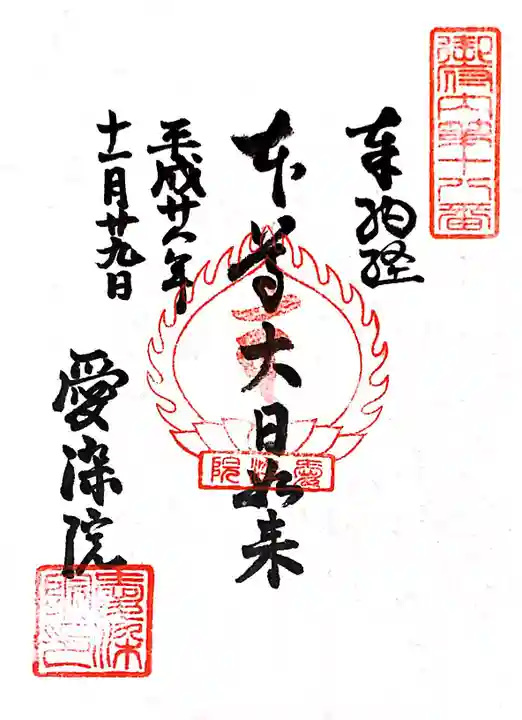 御府内第十八番
奉納経
本尊大日如来
愛染院
平成廿八年
十一月廿九日
愛染院